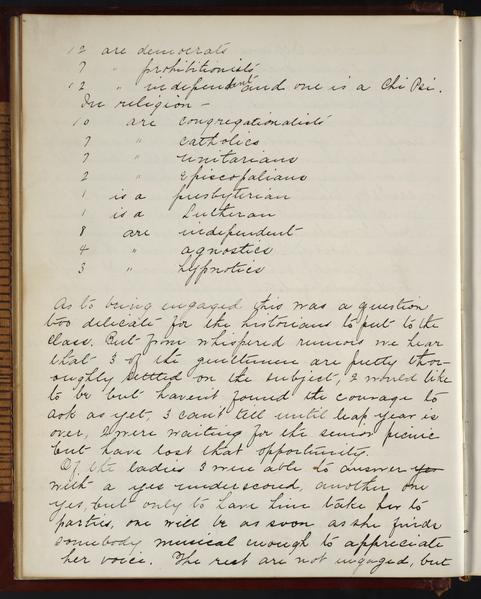 12 are democrats
7 " prohibitionists
12 " independent and one is a Chi Psi.
In religion —
10 are congregationalists
7 " catholics
7 " unitarians
2 " Episcopalians
1 is a presbyterian
1 is a Lutheran
8 are independent
4 " agnostics
3 " hypnotics
As to being engaged this was a question
too delicate for the historians to put to the
class. But from whispered rumors we hear
that 3 of the gentlemen are pretty thor-
oughly settled on the subject, 2 would like
to be but haven't found the courage to
ask as yet, 3 can't tell until leap year is
over, 2 were waiting for the senior picnic
but have lost that opportunity.
Of the ladies 3 were able to answer yes
with a yes underscored, another one
yes, but only to have him take her to
parties, one will be as soon as she finds
somebody musical enough to appreciate
her voice. The rest are not engaged, but